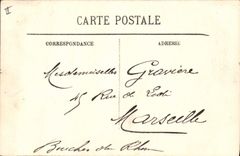 II
CARTE POSTALE
CORRESPONDANCE
ADRESSE
Mesdemoiselles Gravière
45 Rue de
Marseille
Bouches du Rhône